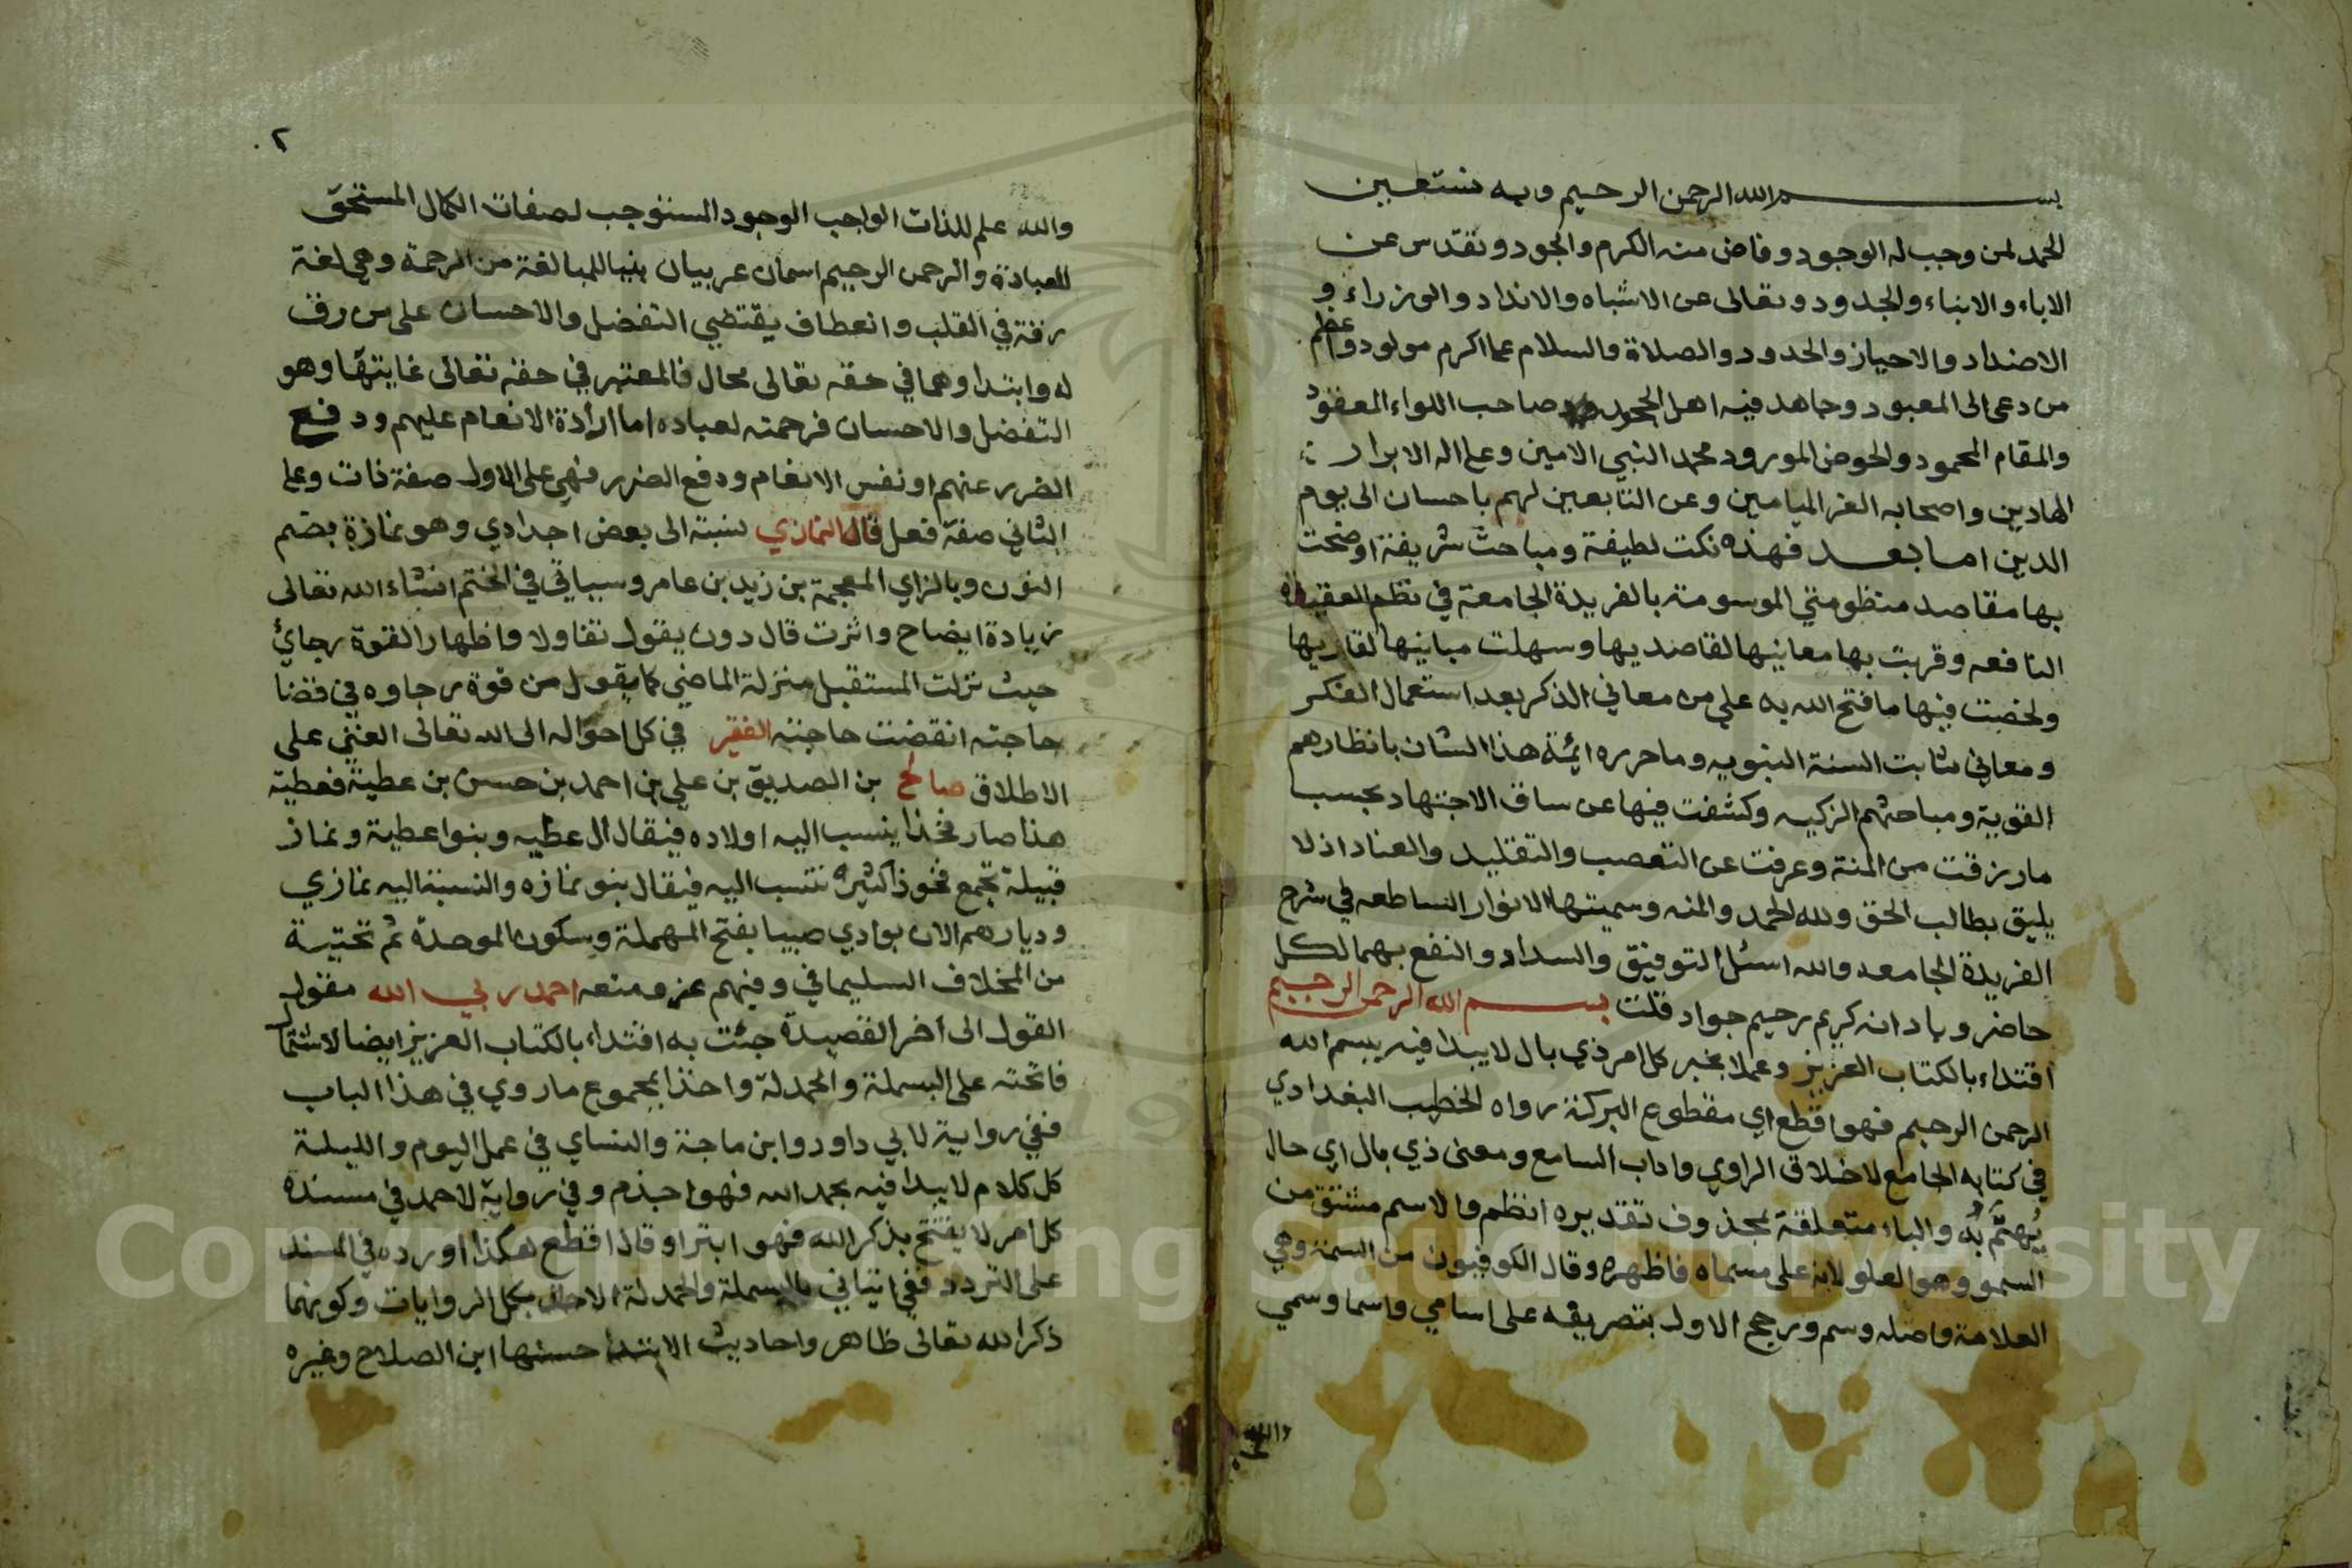 بسم الله الرحمن الرحيم وبه نستعين
الحمد لمن وجب له الوجود وفاض منه الكرم والجود وتقدس عن
الاباء والابناء والجدود وتعالى عن الاشباه والانداد والوزراء و
الاضداد والاحياز والحدود والصلاة والسلام على اكرم مولود واعظم
من دعى الى المعبود وجاهد فيه اهل الجحود صاحب اللواء المعقود
والمقام المحمود والحوض المورود محمد النبي الامين وعلى اله الابرار
الهادين واصحابه الغر الميامين وعن التابعين لهم باحسان الى يوم
الدين اما بعد فهذه نكت لطيفة ومباحث شريفة اوضحت
بها مقاصد منظومتي الموسومة بالفريدة الجامعة في نظم العقيدة
النافعه وقربت بها معانيها لقاصديها وسهلت مبانيها لقاريها
ولخصت فيها ما فتح الله به علي من معاني الذكر بعد استعمال الفكر
ومعاني ثابت السنة النبويه وما حرره ائمة هذا الشان بانظارهم
القوية ومباحثهم الزكيه وكشفت فيها عن ساق الاجتهاد بحسب
ما رزقت من المنة وعرفت عن التعصب والتقليد والعناد اذ لا
يليق بطالب الحق ولله الحمد والمنه وسميتها الانوار الساطعه في شرح
الفريدة الجامعه والله اسئل التوفيق والسداد والنفع بهما لكل
حاضر وباد انه كريم رحيم جواد قلت بسم الله الرحمن الرحيم
اقتداء بالكتاب العزيز وعملا بخبر كل امر ذي بال لا يبدا فيه ببسم الله
الرحمن الرحيم فهو اقطع اي مقطوع البركة رواه الخطيب البغدادي
في كتابه الجامع لاخلاق الراوي واداب السامع ومعنى ذي بال اي حال
يُهتَمُّ بُه والباء متعلقة بمحذوف تقديره انظم والاسم مشتق من
السمو وهو العلو لانه على مسماه فاظهره وقال الكوفيون من السمة وهي
العلامة واصله وسم ورجح الاول بتصريفه على اسامي واسما وسمي
والله
٢
والله علم للذات الواجب الوجود المستوجب لصفات الكمال المستحق
للعبادة والرحمن الرحيم اسمان عربيان بنيا للمبالغة من الرحمة وهي لغة
رقة في القلب وانعطاف يقتضي التفضل والاحسان على من رق
له وابتداوهما في حقه تعالى محال فالمعتبر في حقه تعالى غايتها وهو
التفضل والاحسان فرحمته لعباده اما ارادة الانعام عليهم ودفع
الضرر عنهم او نفس الانعام ودفع الضرر فهي على الاول صفة ذات وعلى
الثاني صفة فعل قال النمازي نسبة الى بعض اجدادي وهو نمازة بضم
النون وبالزاي المعجمة بن زيد بن عامر وسياتي في الختم انشاء الله تعالى
زيادة ايضاح واثرت قال دون يقول تفاولا واظهارا لقوة رجائي
حيث نزلت المستقبل منزلة الماضي كما يقول من قوة رجاوه في قضا
حاجته انقضت حاجته الفقير في كل احواله الى الله تعالى الغني على
الاطلاق صالح بن الصديق بن علي بن احمد بن حسن بن عطية فعطية
هذا صار فخذا ينسب اليه اولاده فيقال ال عطيه وبنوا عطية ونماز
قبيلة تجمع فخوذا كثيره تنتسب اليه فيقال بنو نمازه والنسبة اليه نمازي
وديارهم الان بوادي صبيا بفتح المهملة وسكون الموحدة ثم تحتية
من المخلاف السليماني وفيهم عز ومنعه احمد ربي الله مقول
القول الى اخر القصيدة جئت به اقتداء بالكتاب العزيز ايضا لاشتمال
فاتحته على البسملة والحمدلة واخذا بمجموع ما روي في هذا الباب
ففي رواية لابي داود وابن ماجة والنساي في عمل اليوم والليلة
كل كلام لا يبدا فيه بحمد الله فهو اجذم وفي رواية لاحمد في مسنده
كل امر لا يفتتح بذكر الله فهو ابتر او قال اقطع هكذا اورده في المسند
على التردد ففي اتياني بالبسملة والحمدلة بكل الروايات وكونهما
ذكر الله تعالى ظاهر واحاديث الابتدا حسنها ابن الصلاح وغيره